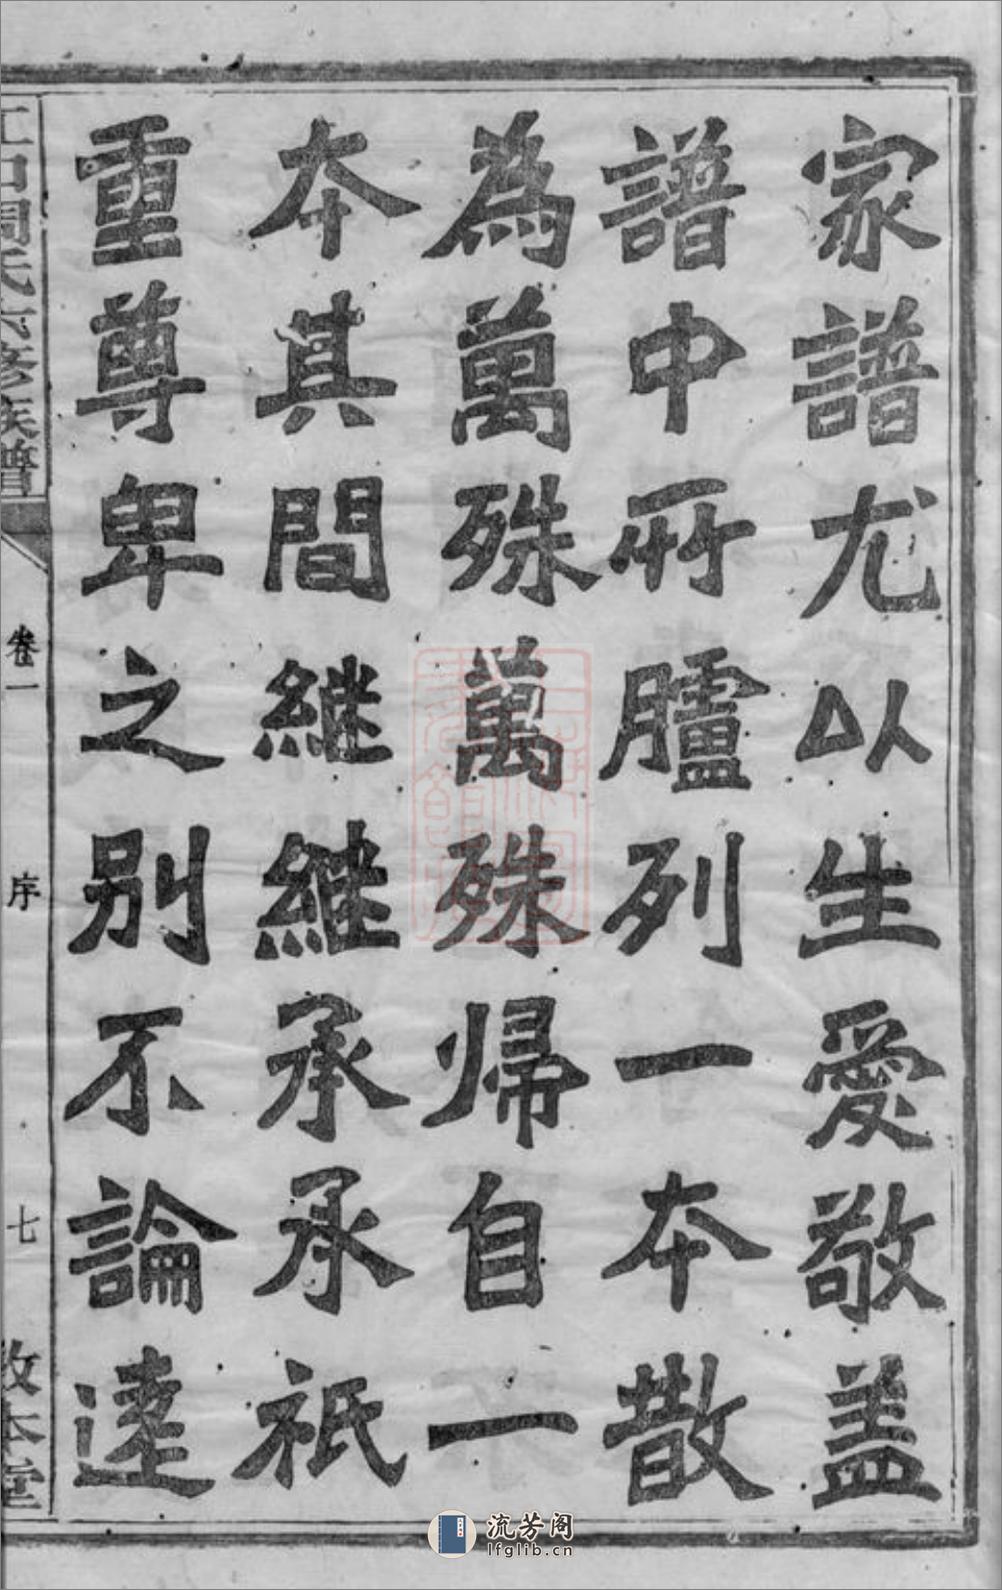 家譜尤以生愛敬蓋
譜中所臚列一本散
為萬殊萬殊歸自一
本其間繼繼承承祇
重尊卑之別不論達
卷一
序
七
敦本堂
流芳阁
lfglib.cn